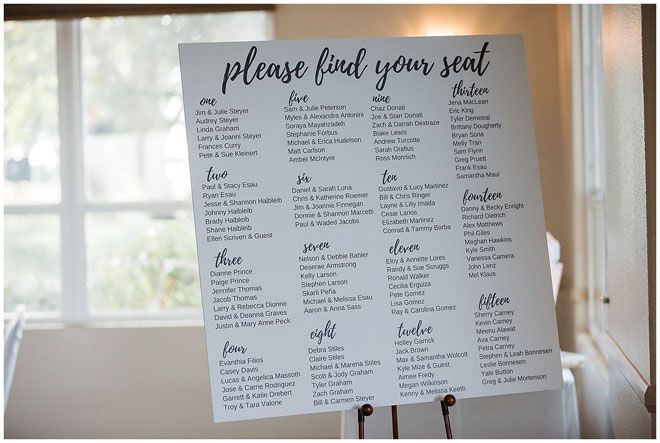 please find your seat
one
Jim & Julie Steyer
Audrey Steyer
Linda Graham
Larry & Joanni Steyer
Frances Curry
Pete & Sue Kleinert
two
Paul & Stacy Esau
Ryan Esau
Jesse & Shannon Halbleib
Johnny Halbleib
Brady Halbleib
Shane Halbleib
Ellen Scriven & Guest
three
Dianne Prince
Paige Prince
Jennifer Thomas
Jacob Thomas
Larry & Rebecca Dionne
David & Deanna Graves
Justin & Mary Anne Peck
four
Evanthia Filios
Casey Davis
Lucas & Angelica Massoth
Jose & Carrie Rodriguez
Garrett & Katie Drebert
Troy & Tara Valone
five
Sam & Julie Peterson
Myles & Alexandra Antonini
Soraya Mayahzadeh
Stephanie Forbus
Michael & Erica Hudelson
Matt Carlson
Amber McIntyre
six
Daniel & Sarah Luna
Chris & Katherine Roemer
Jim & Joannie Finnegan
Donnie & Shannon Marcetti
Paul & Waded Jacobs
seven
Nelson & Debbie Bahler
Deserae Armstrong
Kelly Larson
Stephen Larson
Skarli Peña
Michael & Melissa Esau
Aaron & Anna Sass
eight
Debra Stiles
Claire Stiles
Michael & Marena Stiles
Scott & Jody Graham
Tyler Graham
Zach Graham
Bill & Carmen Steyer
nine
Chaz Donati
Joe & Starr Donati
Zach & Darrah Dextraze
Blake Lewis
Andrew Turcotte
Sarah Grafius
Ross Monnich
ten
Gustavo & Lucy Martinez
Bill & Chris Ringer
Layne & Lilly Imada
Cesar Larios
Elizabeth Martinez
Conrad & Tammy Borba
eleven
Eloy & Annette Lores
Randy & Sue Scruggs
Ronald Walker
Cecilia Erguiza
Pete Gomez
Lisa Gomez
Ray & Carolina Gomez
twelve
Holley Garrick
Jack Brown
Max & Samantha Wolcott
Kyle Mize & Guest
Aimee Fredy
Megan Wilkinson
Kenny & Melissa Keeth
thirteen
Jena MacLean
Eric King
Tyler Demetral
Brittany Dougherty
Bryan Soria
Melly Tran
Sam Flynn
Greg Pruett
Frank Esau
Samantha Maur
fourteen
Danny & Becky Enright
Richard Dietrich
Alex Matthews
Phil Giles
Meghan Hawkins
Kyle Smith
Vanessa Camera
John Lenz
Mel Klaus
fifteen
Sherry Carney
Kevin Carney
Meenu Alawat
Ava Carney
Petra Carney
Stephen & Leah Bonnesen
Leslie Bonnesen
Yale Button
Greg & Julie Mortenson